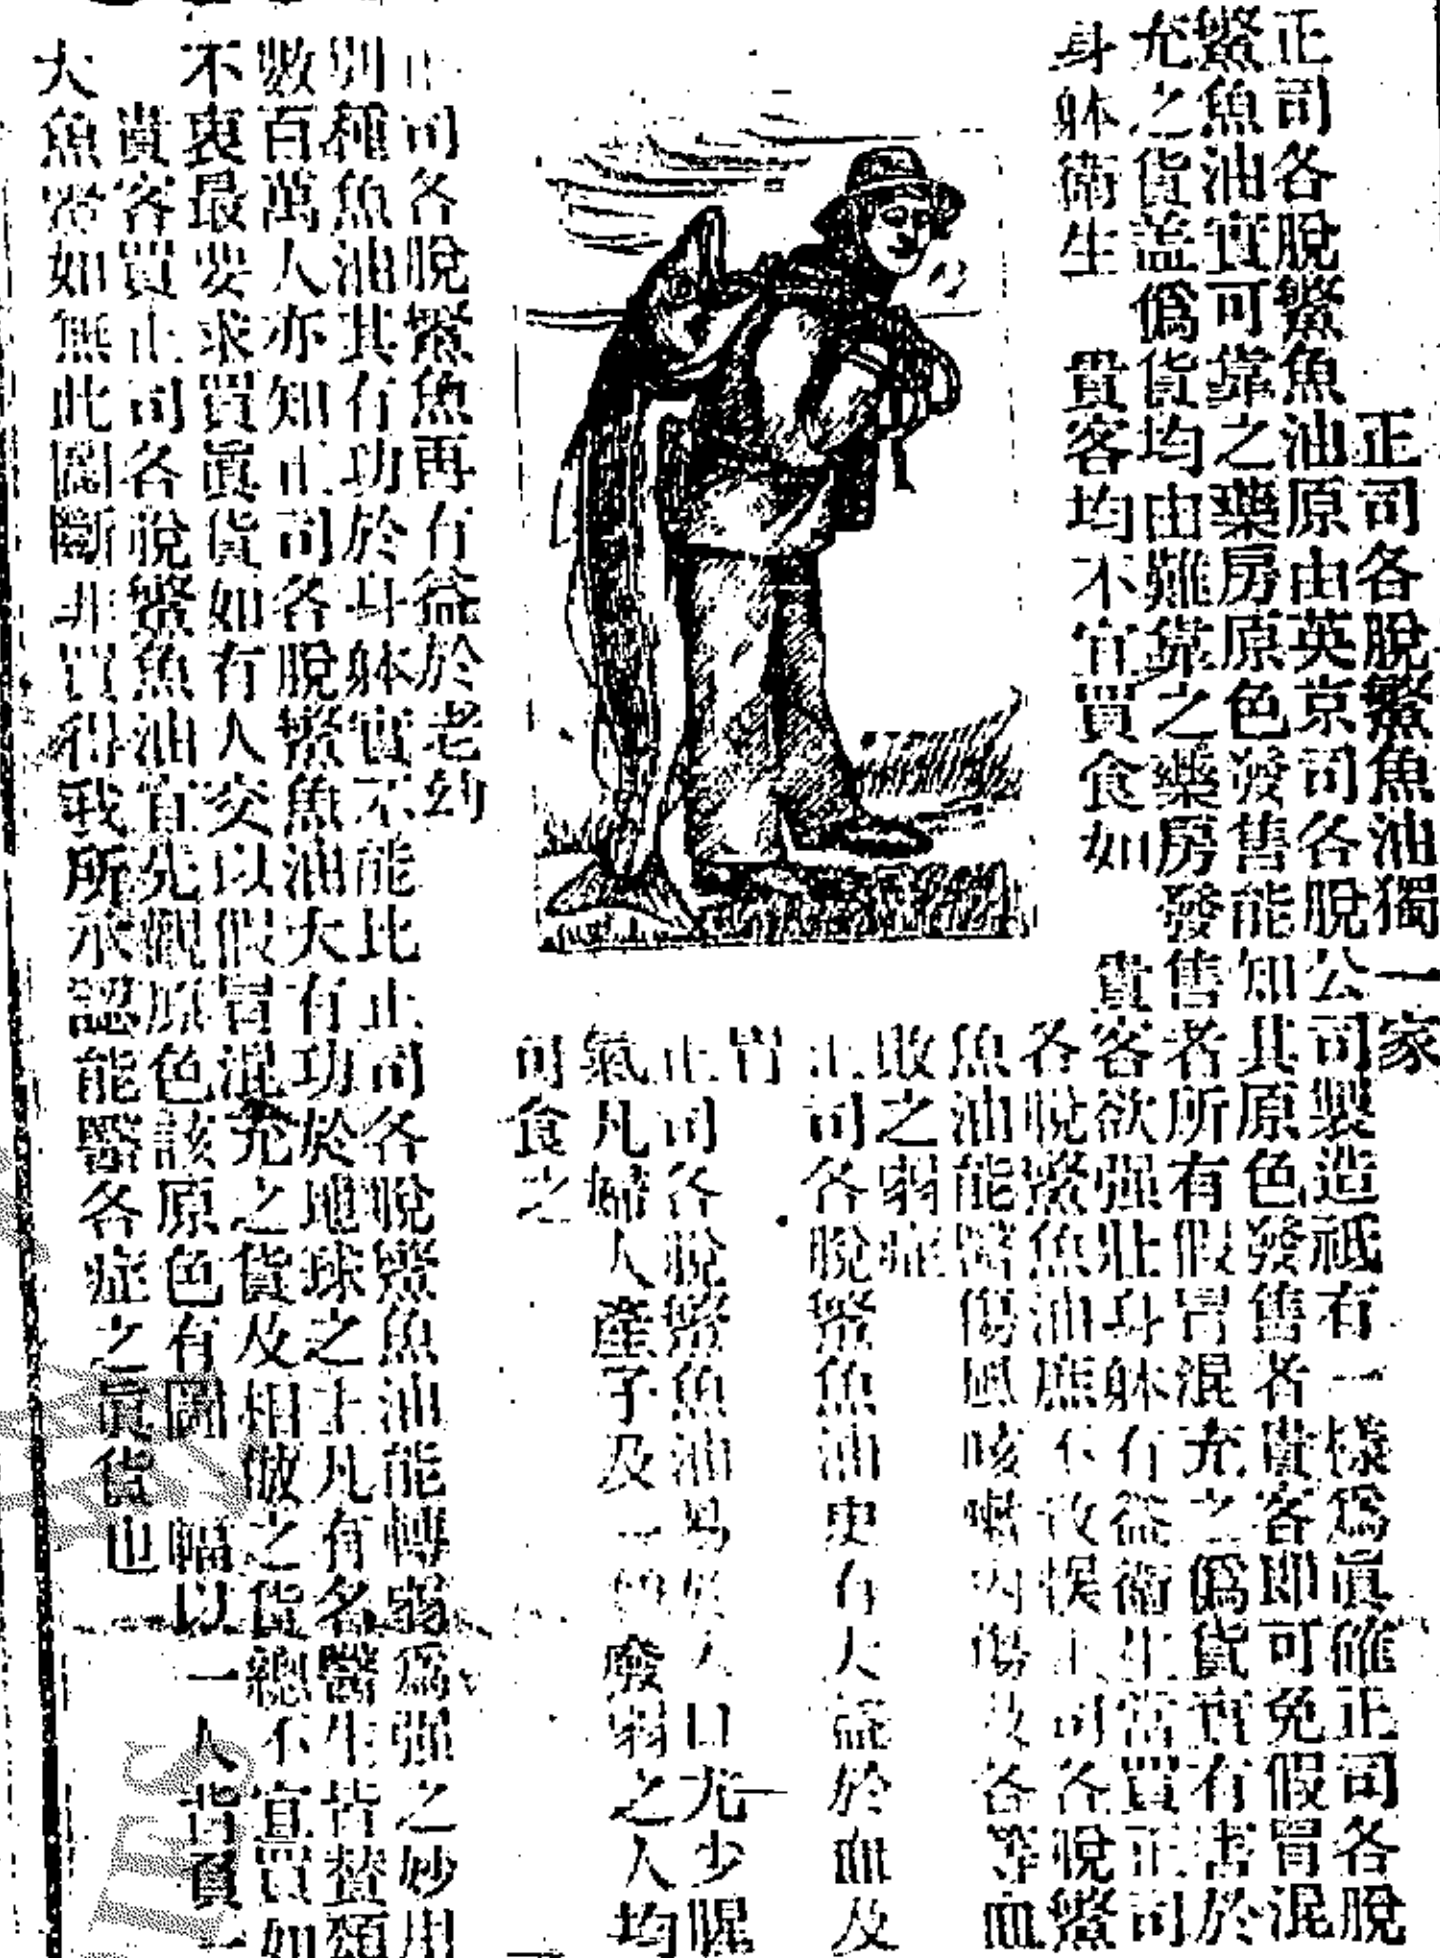 正司各脫鰵魚油獨一家
正司各脫鰵魚油原由英京司各脫公司製造祗有一樣爲眞確正司各脫
鰵魚油實可靠之藥房原色發售能知其原色發售者貴客即可免假冒混
充之貨盖僞貨均由難靠之藥房發售者所有假冒混充之僞貨實有害於
身躰衛生 貴客均不宜買食如 貴客欲强壯身躰有益衛生當買正司
各脫鰵魚油庶不致悞正司各脫鰵
魚油能醫傷風咳嗽內傷及各等血
敗之弱症
正司各脫鰵魚油更有大益於血及
胃
正司各脫鰵魚油易於入口尤少腥
氣凡婦人產子及一切癈弱之人均
可食之
正司各脫鰵魚再有益於老幼
別種魚油其有功於身躰實不能比正司各脫鰵魚油能轉弱爲强之妙用
數百萬人亦知正司各脫鰵魚油大有功於地球之上凡有名醫生皆賛頌
不衷最要求買眞貨如有人交以假冒混充之貨及相倣之貨總不宜買如
貴客買正司各脫鰵魚油宜先觀原色該原色有圖 幅以一人背負一
大魚 如無此圖斷非買得我所承認能醫各症之眞貨也